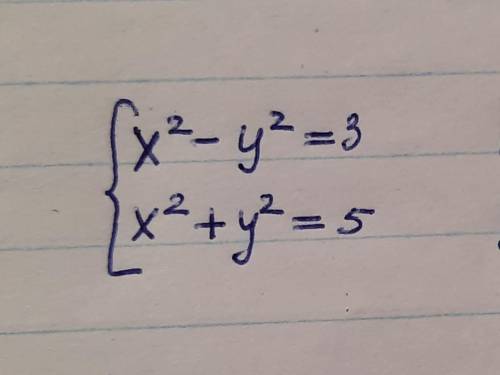 x² - y² = 3
x² + y² = 5